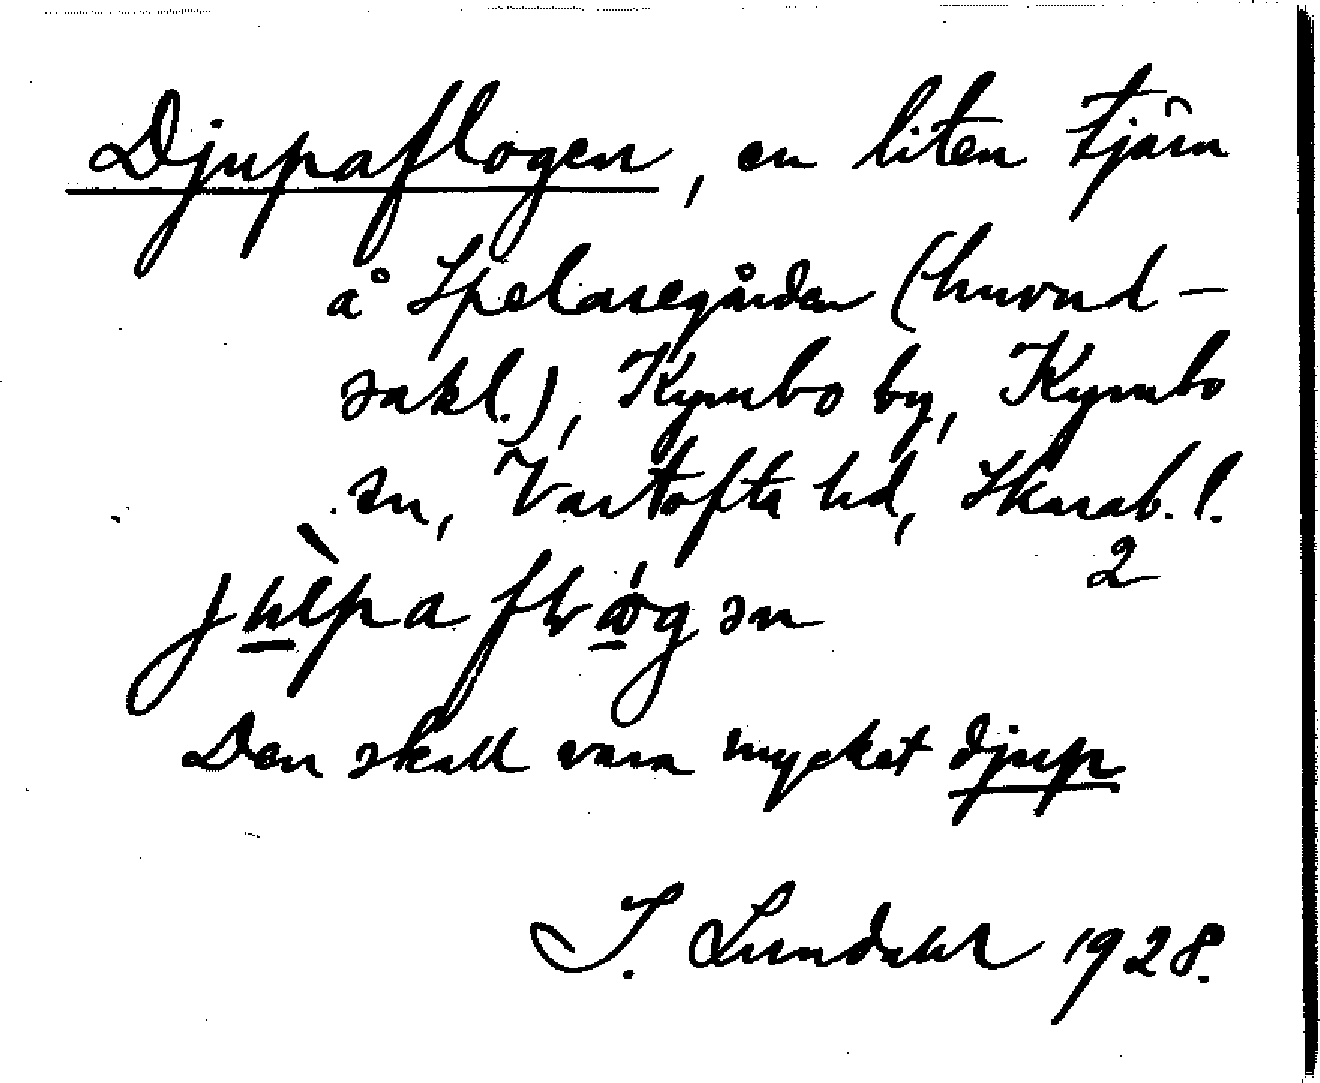 Djupaflogen, en liten tjärn
å Spelaregården (huvud-
sakl.), Kymbo by, Kymbo
sn, Vartofta hd, Skarab. l.
2
Den skall vara mycket djup
I. Lundahl 1928.